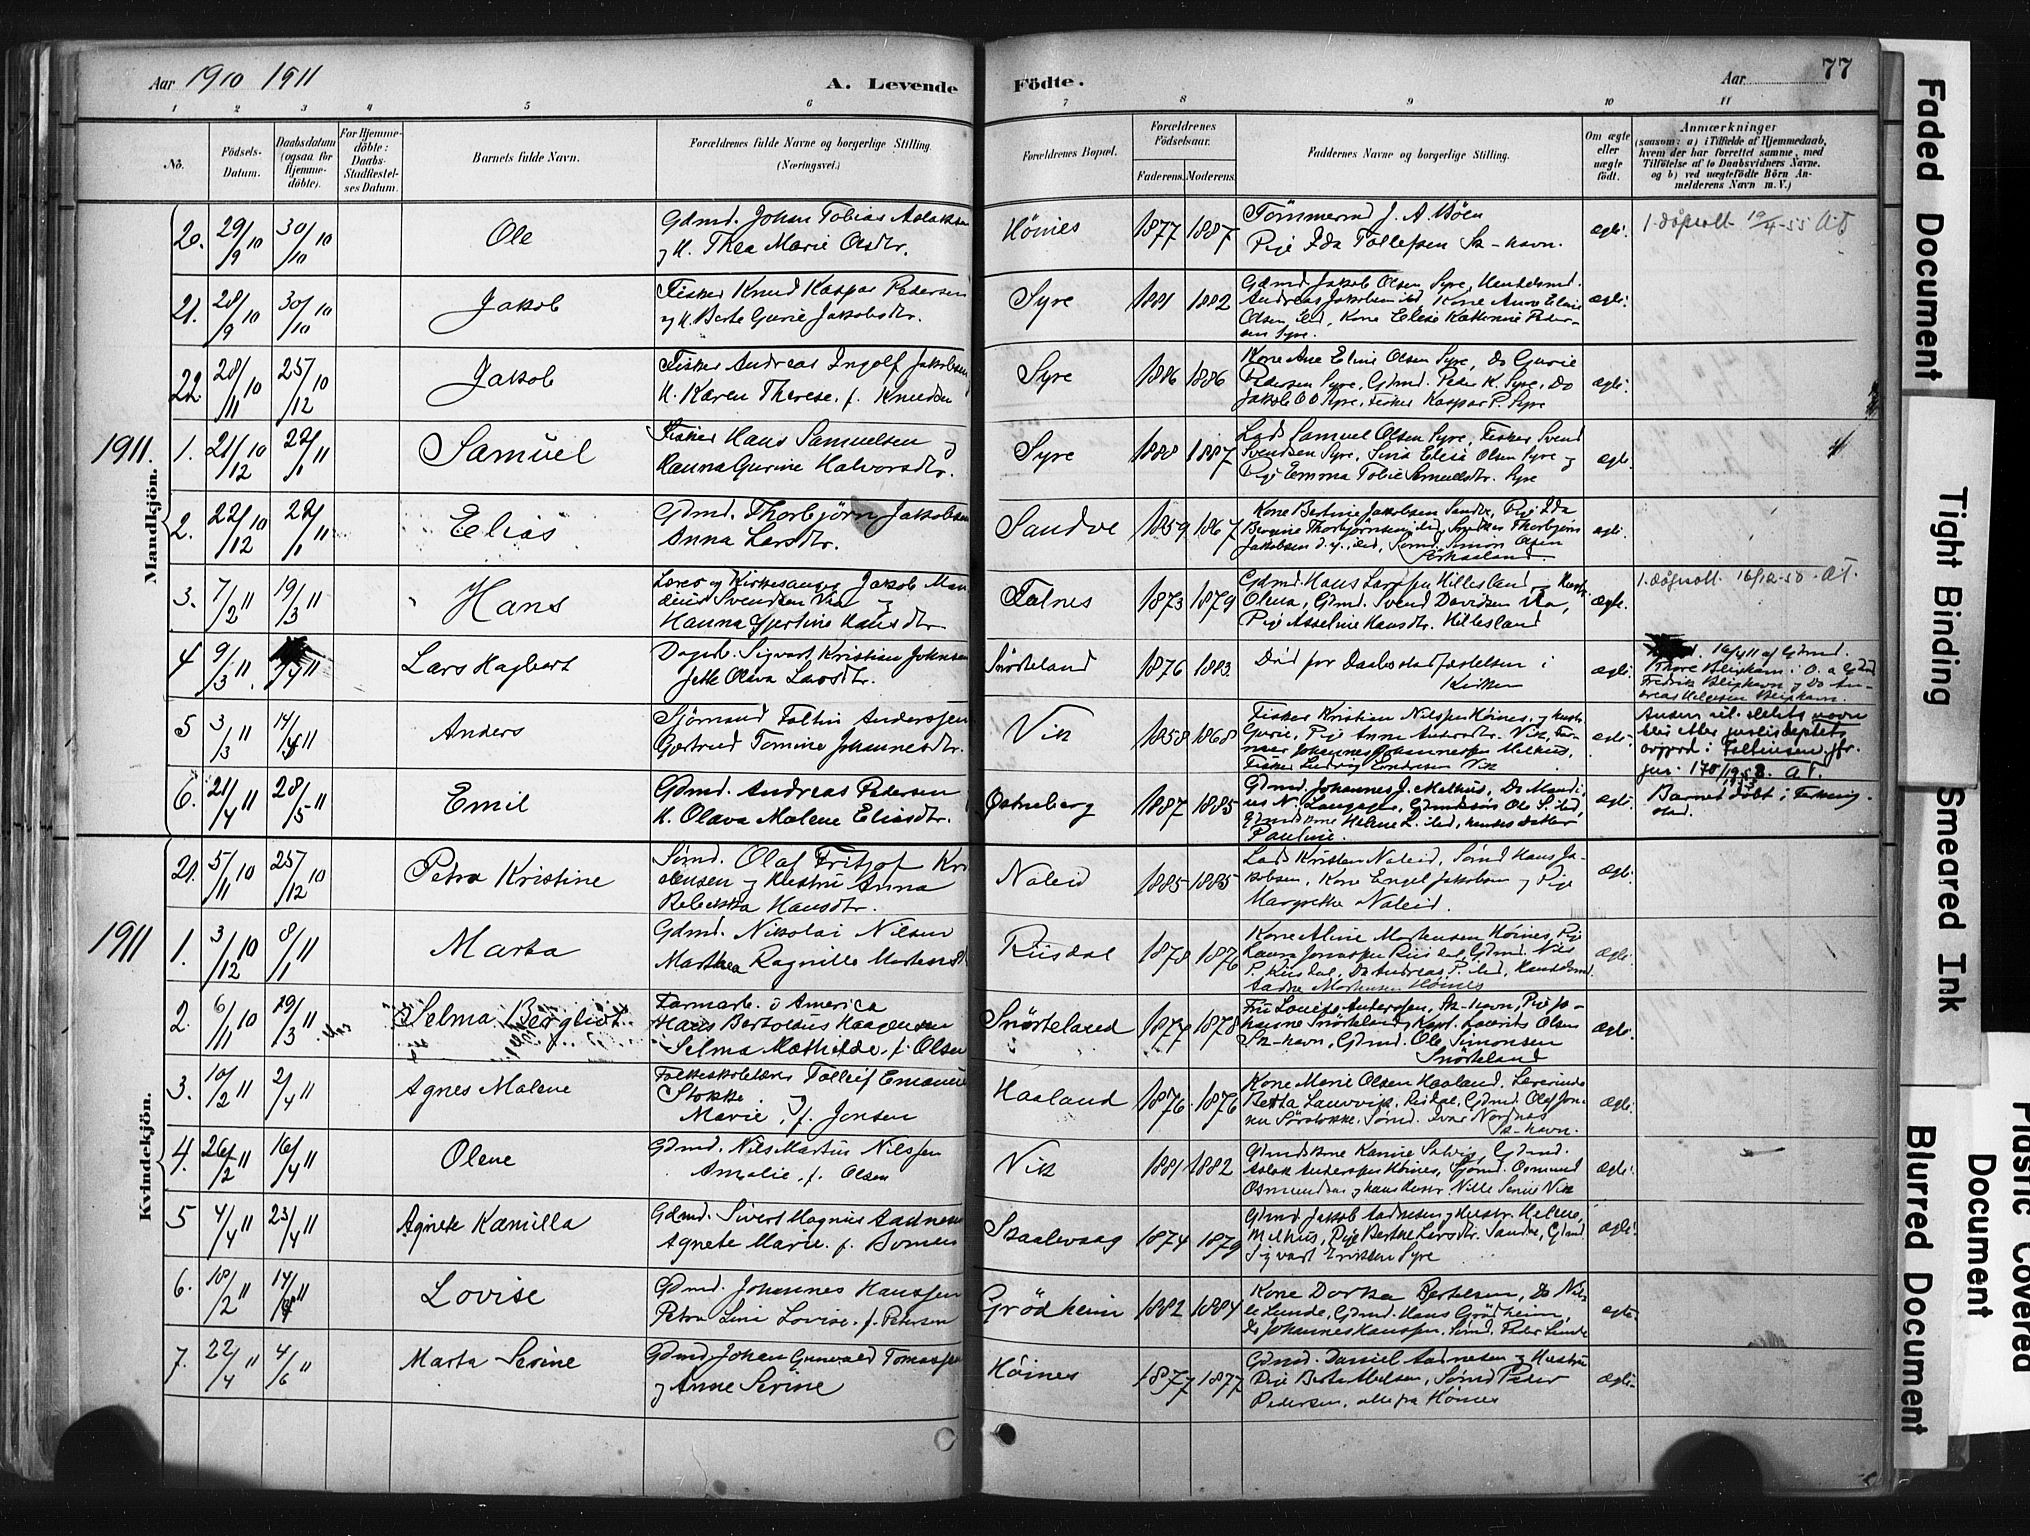 Aar 1910 1911
A. Levende
Födte.
Aar
77
1 2 3 4 5 6 7 8 9 10 11
Nö.
Födsels-
Datum.
Daabsdatum
(ogsaa för
Hjemme-
döbte).
For Hjemme-
döbte:
Daabs-
Stadfæstel-
ses Datum.
Barnets fulde Navn.
Forældrenes fulde Navne og borgerlige Stilling.
(Næringsvei.)
Forældrenes Bopæl.
Forældrenes
Födselsaar.
Faderens. Moderens.
Faddernes Navne og borgerlige Stilling.
Om ægte
eller
uægte
födt.
Anmærkninger
(saasom: a) i Tilfælde af Hjemmedaab,
hvem der har forrettet samme, med
Tilföielse af to Daabsvidners Navne,
og b) ved uægtefödte Börn An-
melderens Navn m. V.)
Mandkjön.
20. 29/9 10 30/10 10
Ole
Gdmd. Johan Tobias Aslaksen
og H. Thea Marie Olsdtr.
Höines
1877 1887
Pige Ida Tollefsen Sk-havn.
ægte.
1. döpsatt. 19/4-55 AT
21. 28/9 10 30/10 10
Jakob
Fisker Knud Kaspar Pedersen
og H. Berte Gurie Jakobsdtr.
Syre
1881 1882
Gdmd. Jakob Olsen Syre, Handelsmd.
Andreas Jakobsen ibd Kone Anne Eline
Olsen ibd, Kone Elise Katherine Peder-
sen Syre.
ægte.
22 28/11 10 25/12 10
Jakob
Fisker Andreas Ingolf Jakobsen
H. Karen Therese, f. Knudsen
Syre
1886 1886
Kone Ane Eline Olsen Syre, Do Gurie
Pedersen Syre, Gdmd. Peder K. Syre, Do
Jakob O O Syre, Fisker Kaspar P. Syre
ægte.
1911.
1. 21/12 10 22/1 11
Samuel
Fisker Hans Samuelsen og
Hanna Gurine Halvorsdtr.
Syre
1888 1887
Lods Samuel Olsen Syre, Fisker Svend
Svendsen Syre, Elise Olsen Syre og
Pige Emma Tobie Samuelsdtr. Syre
ægte.
2. 22/12 10 22/1 11
Elias
Gdmd. Thorbjörn Jakobsen
Anna Larsdtr.
Sandve
1859 1867
Kone Bertine Jakobsen Sandve, Pige Ida
Bergine Thorbjörnsen ibd, Snedker Thorbjörn
Jakobsen d. y. ibd, Sömd. Simon Olsen
ægte.
3. 7/2 11 19/3 11
Hans
Lærer og Kirkesanger Jakob Man-
dius Svendsen Vea og
Hanna Gjertine Hansdtr
Falnes
1873 1879
Gdmd. Hans Larssen Hillesland og Hustr.
Olena, Gdmd. Svend Davidsen Vea,
Pige Asseline Hansdtr. Hillesland
ægte.
1. döpsatt. 16/12-50. AT.
4 9/3 11 /4 11
Lars Hagbart
Dagarb. Sigvart Kristian Johnsen
Jette Olava Larsdtr.
Snörteland
1876 1883.
Död för Daabsstadfæstelsen i
Kirken
ægte.
16/4 11 af Gdmd.
5 3/3 11 14/5 11
Anders
Sjömand Faltin Anderssen
Gjertrud Tomine Johannesdtr.
Vik
1858 1868
Fisker Kristian Nilssen Höines, og Hustr.
Gurie, Pige Anne Andersdtr. Vik, Fi-
sker Johannes Johannessen Melhus,
Fisker Ludvig Endresen Vik
ægte.
Anders sit slekts navn
blev etter justisdeptets
avgjord: Faltinsen, jfr.
jnr. 170/1953. AT.
6. 21/4 11 28/5 11
Emil
Gdmd. Andreas Pedersen
H. Olava Malene Eliasdtr.
Östneberg
1887 1885
Gdmd. Johannes J. Melhus, Do Mandi-
us N. Langager, Gdmdssön Ole S. ibd,
Gdmdskone Helene L. ibd, hendes Datter
Pauline.
ægte.
Barnet döbt i
Kvindekjön.
21. 5/11 10 25/12 10
Petra Kristine
Sömd. Olaf Fritjof Kri-
stensen og Hustru Anna
Rebekka Hansdtr.
Naleid
1885 1885
Lods Kristen Naleid, Sömd Hans Ja-
kobsen, Kone Engel Jakobsen og Pige
Margrethe Naleid.
ægte.
1911
1. 3/12 10 8/1 11
Marta
Gdmd. Nikolai Nilsen
Marthea Ragnille Mortensd
Riisdal
1878 1876
Kone Aline Mortensen Höines, Pige
Laura Jonassen Riisdal, Gdmd. Nils
P. Riisdal, Do Andreas P. ibd, Handelsmd.
Aadne Mortensen Höines
ægte.
2. 6/11 10 19/3 11
Selma Bergliot
Farmarb. i America
Hans Bertoldus Haagensen
Selma Mathilde, f. Olsen
Snörteland
1877 1878
Fru Lovise Anderssen, Sk-havn, Pige Jo-
hanne Snörteland, Kapt. Laurits Olsen
Sk-havn, Gdmd. Ole Simonsen
Snörteland
ægte.
3. 10/2 11 2/4 11
Agnes Malene
Folkeskolelærer Tollef Emanuel
Stokke og
Marie, f. Jonsen
Haaland
1876. 1876
Kone Marie Olsen Haaland. Lærerinde
Berta Lauvvik. Risdal, Gdmd. Olaf Jon-
sen Sörstokke. Sömd. Ivar Nordnes
Sk-havn.
ægte.
4. 26/2 11 16/4 11
Olene
Gdmd. Nils Martin Nilssen
Amalie, f. Olsen
Vik
1881 1882
Gdmdskone Kamie Gdmd.
Aslak Anderssen Höines, Sjömd. Osmund
Osmundsen og hans Hustr. Nille Serine Vik
ægte.
5 4/4 11 23/4 11
Agnete Kamilla
Gdmd. Sivert Magnus Aadnesen
Agnete Marie. f.
Skaalevaag
1874 1879
Gdmd. Jakob Aadnesen og Hustr. Helene,
Melhus, Pige Berthe Larsdtr. Sandve, Gdmd.
Sigvart Eriksen Syre
ægte.
6. 18/2 11 14/5 11
Lovise
Gdmd. Johannes Hanssen
Petra Lini Lovise. f. Petersen
Grödheim
1882 1884
Kone Dorthea Bertelsen, Do Nil-
le Lunde, Gdmd. Hans Grödheim,
Do Johannes Hanssen. Sömd. Peder Lunde
ægte.
7. 22/4 11 4/6 11
Marta Serine
Gdmd. Johan Grunvald Tomassen
og Anne Serine
Höines
1877 1877
Gdmd. Daniel Aadnesen og Hustru
Pige Berta Nielsen, Sömd Peder
Pedersen, alle fra Höines
ægte.
Faded Document
Tight Binding
Smeared Ink
Blurred Document
Plastic Covered
Document